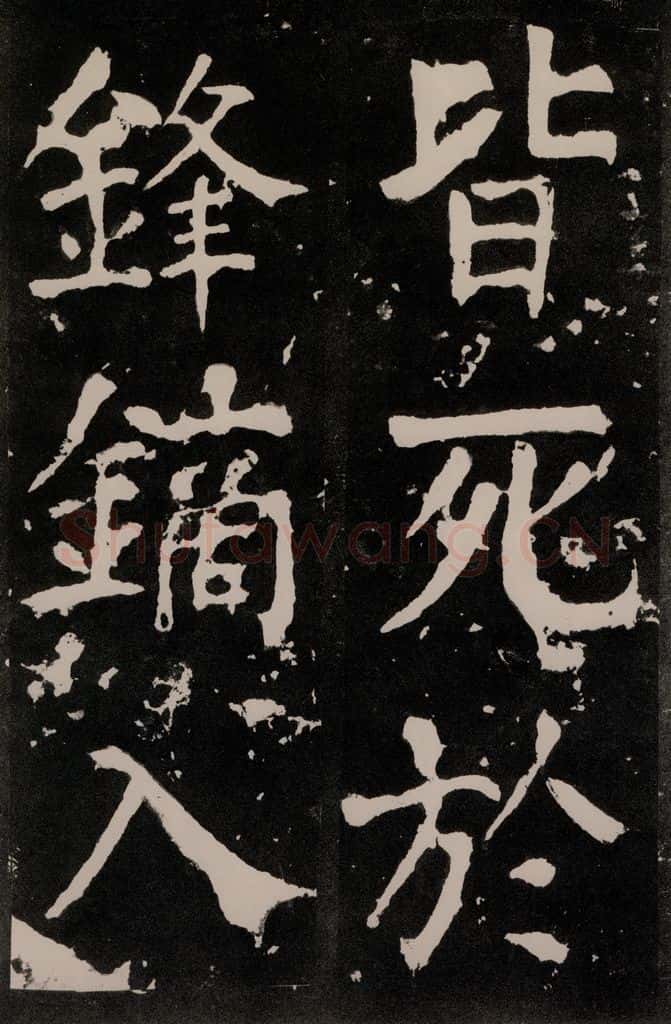 皆死於
鋒鏑入
Shufawang.CN